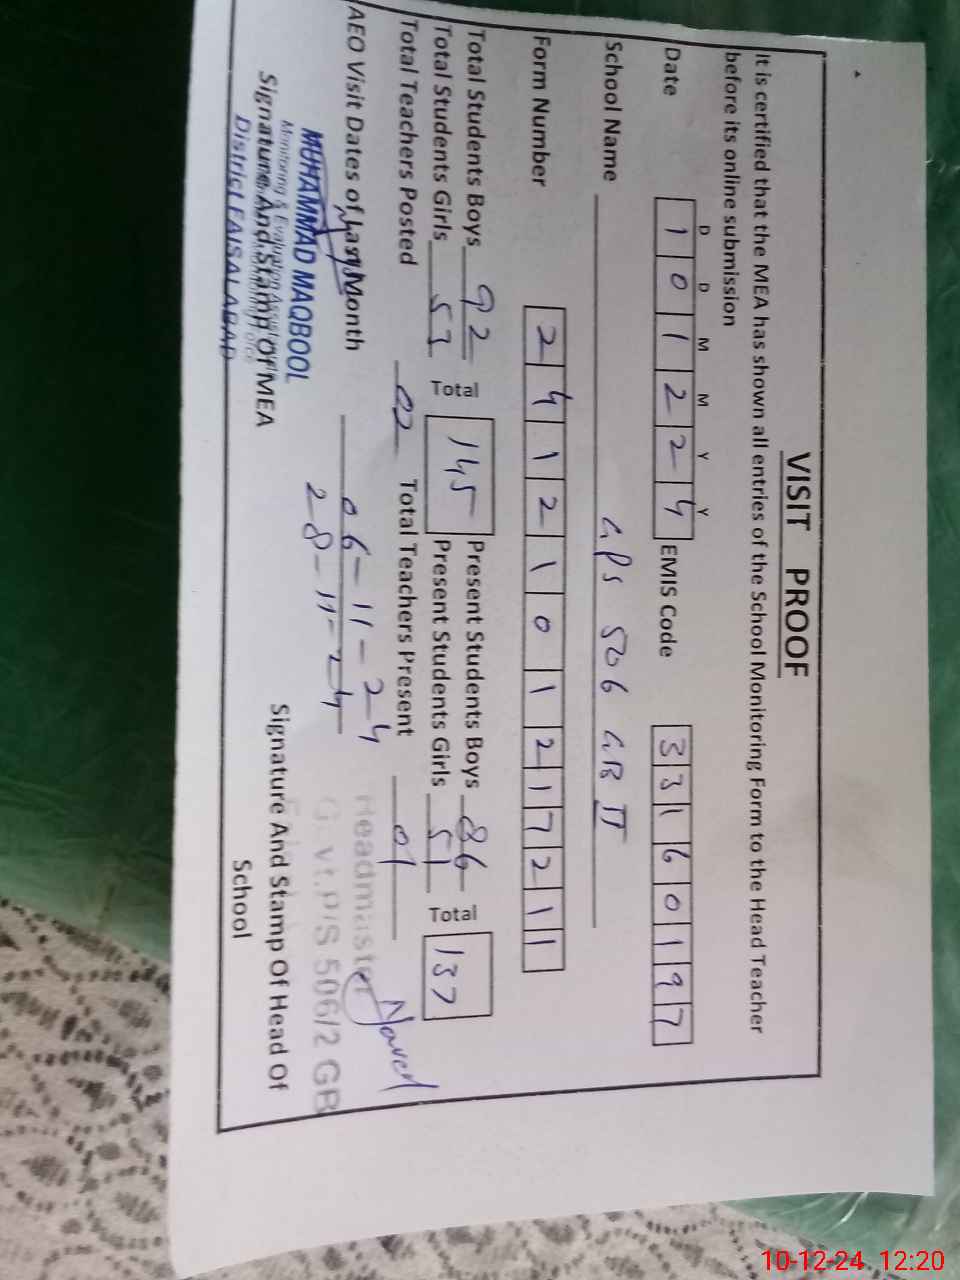 VISIT PROOF
It is certified that the MEA has shown all entries of the School Monitoring Form to the Head Teacher
before its online submission
D D M M Y Y
Date 1 0 1 2 2 4 EMIS Code 3 3 1 6 0 1 9 7
School Name GPS 506 GB II
Form Number 2 4 1 2 1 0 1 2 1 7 2 1 1
Total Students Boys 92 Present Students Boys 86
Total 145 Total 137
Total Students Girls 53 Present Students Girls 51
Total Teachers Posted 02 Total Teachers Present 01
AEO Visit Dates of Last Month 06-11-24
28-11-24
Headmaster
Govt.P/S 506/2 GB
MUHAMMAD MAQBOOL
Monitoring & Evaluation
Signature And Stamp Of MEA
District FAISALABAD
Signature And Stamp Of Head Of
School
10-12-24 12:20